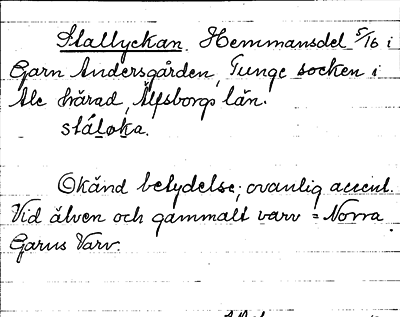 Stallyckan. Hemmansdel 5/16 i
Garn Andersgården, Tunge socken i
Ale härad, Älfsborgs län.
stáloka.
Okänd betydelse; ovanlig accent.
Vid älven och gammalt varv = Norra
Garns Varv.